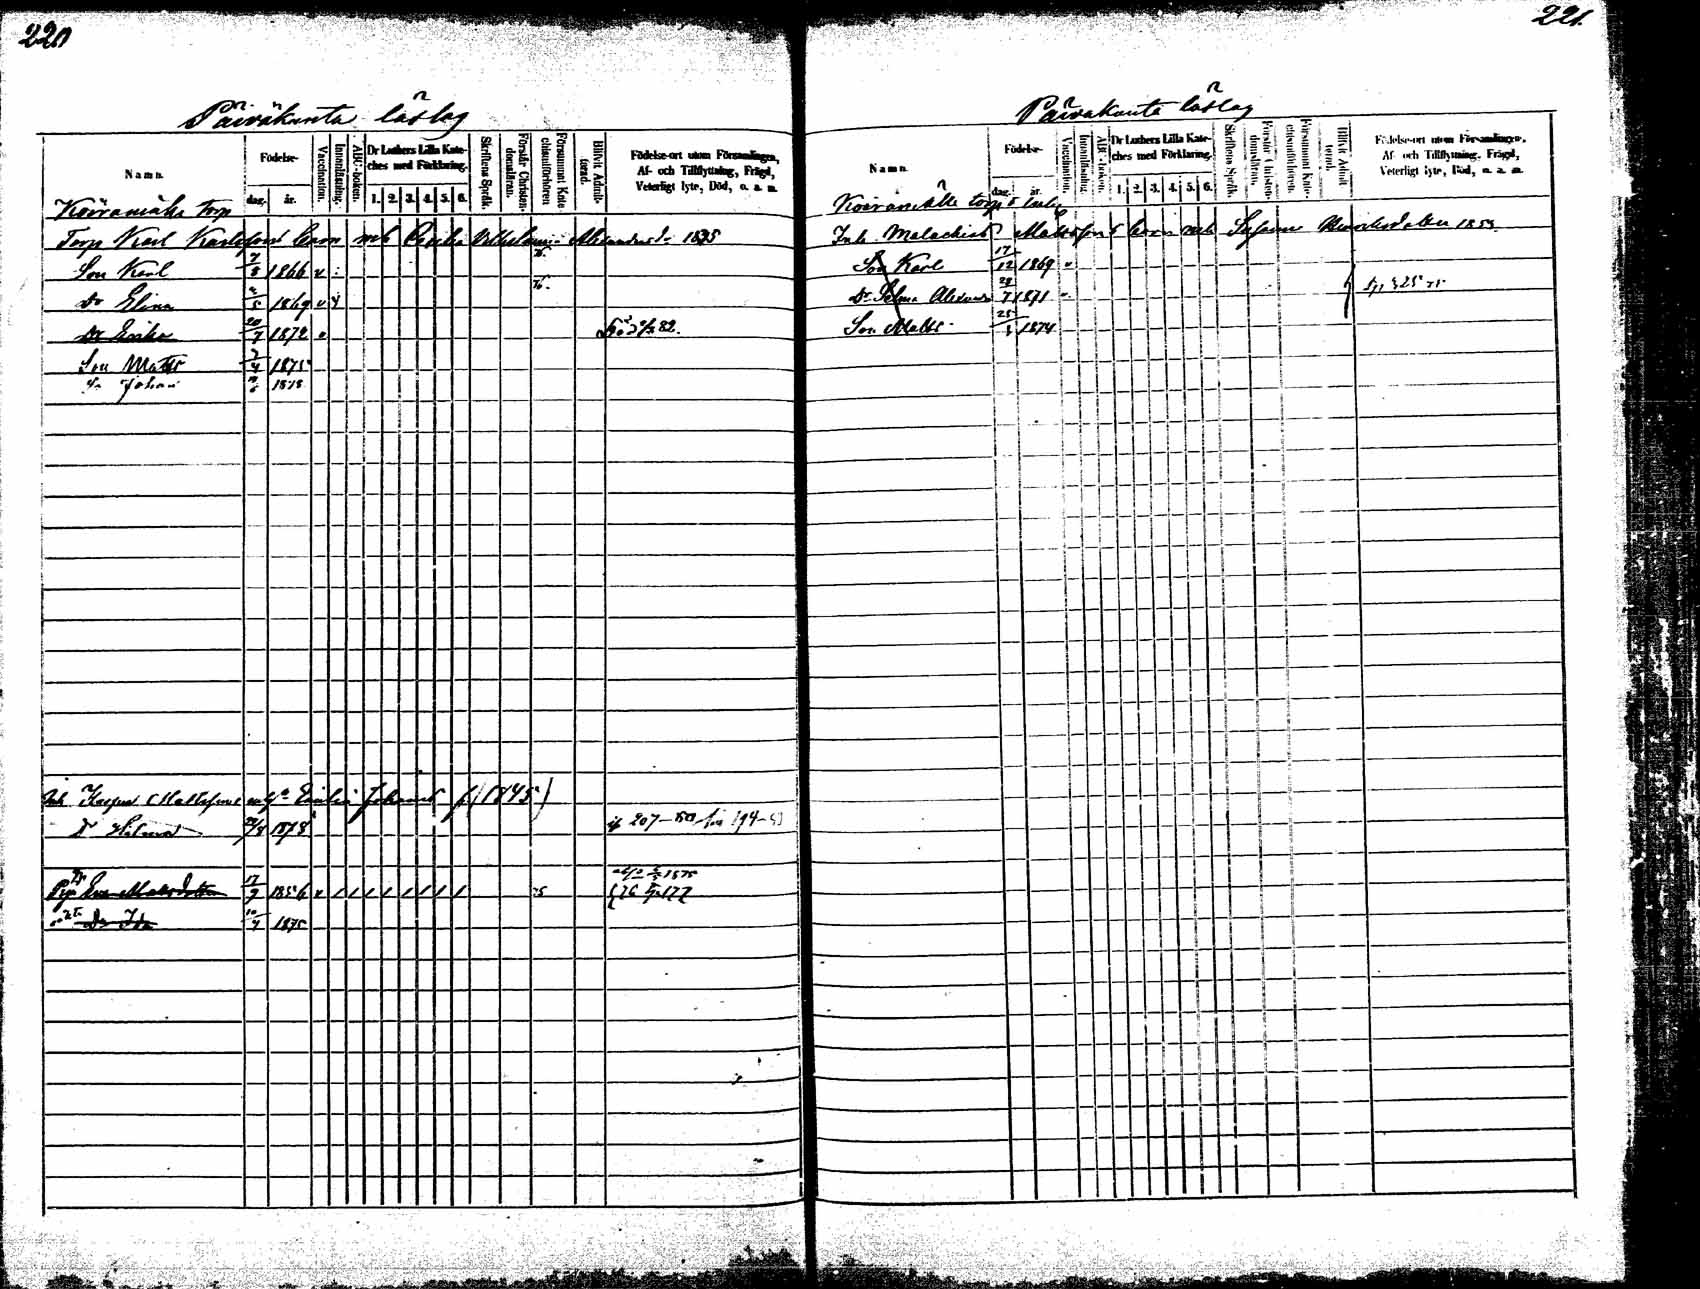 220
Päiväkunta läslag
Namn.
Födelse-
dag.
år.
Vaccination.
Innanläsning.
ABC-boken.
Dr Luthers Lilla Kate-
ches med Förklaring.
1. 2. 3. 4. 5. 6.
Skriftens Språk.
Förstår Christen-
domsläran.
Försummat Kate-
chismiförhören
Blifvit Admit-
terad.
Födelse-ort utom Församlingen,
Af- och Tillflyttning, Frägd,
Veterligt lyte, Död, o. a. m.
Koiramäke torp
Torp Karl Karlsson barn mh Cecilia Vilhelmina Alexandersd. 1835
Son Karl 7/8 1866 v
76.
Dr Elina 2/5 1869 v
76.
Dr Erika 20/7 1872 v Död 82.
Son Matts 7/4 1875
Johan 1878
Inh. Kasper Mattsson Emilia Johansd (1845)
Dr Hilma 24/8 1878 207
Pig. Eva Matsdotter 17/7 1856 v 1 1 1 1 1 1 1 1 75
1875
Dr Ida 10/4 1875
221.
Päiväkunta läslag
Namn.
Födelse-
dag. år.
Vaccination.
Innanläsning.
ABC-boken.
Dr Luthers Lilla Kate-
ches med Förklaring.
1. 2. 3. 4. 5. 6.
Skriftens Språk.
Förstår Christen-
domsläran.
Försummat Kate-
chismiförhören.
Blifvit Admit-
terad.
Födelse-ort utom Församlingen,
Af- och Tillflyttning, Frägd,
Veterligt lyte, Död, o. a. m.
Koiramäke torp
Inh. Malachias Mattsson barn mh Susanna 1853
Son Karl 17/12 1869 v
Dr Selma 28/7 1871
Son Matts 25 1874